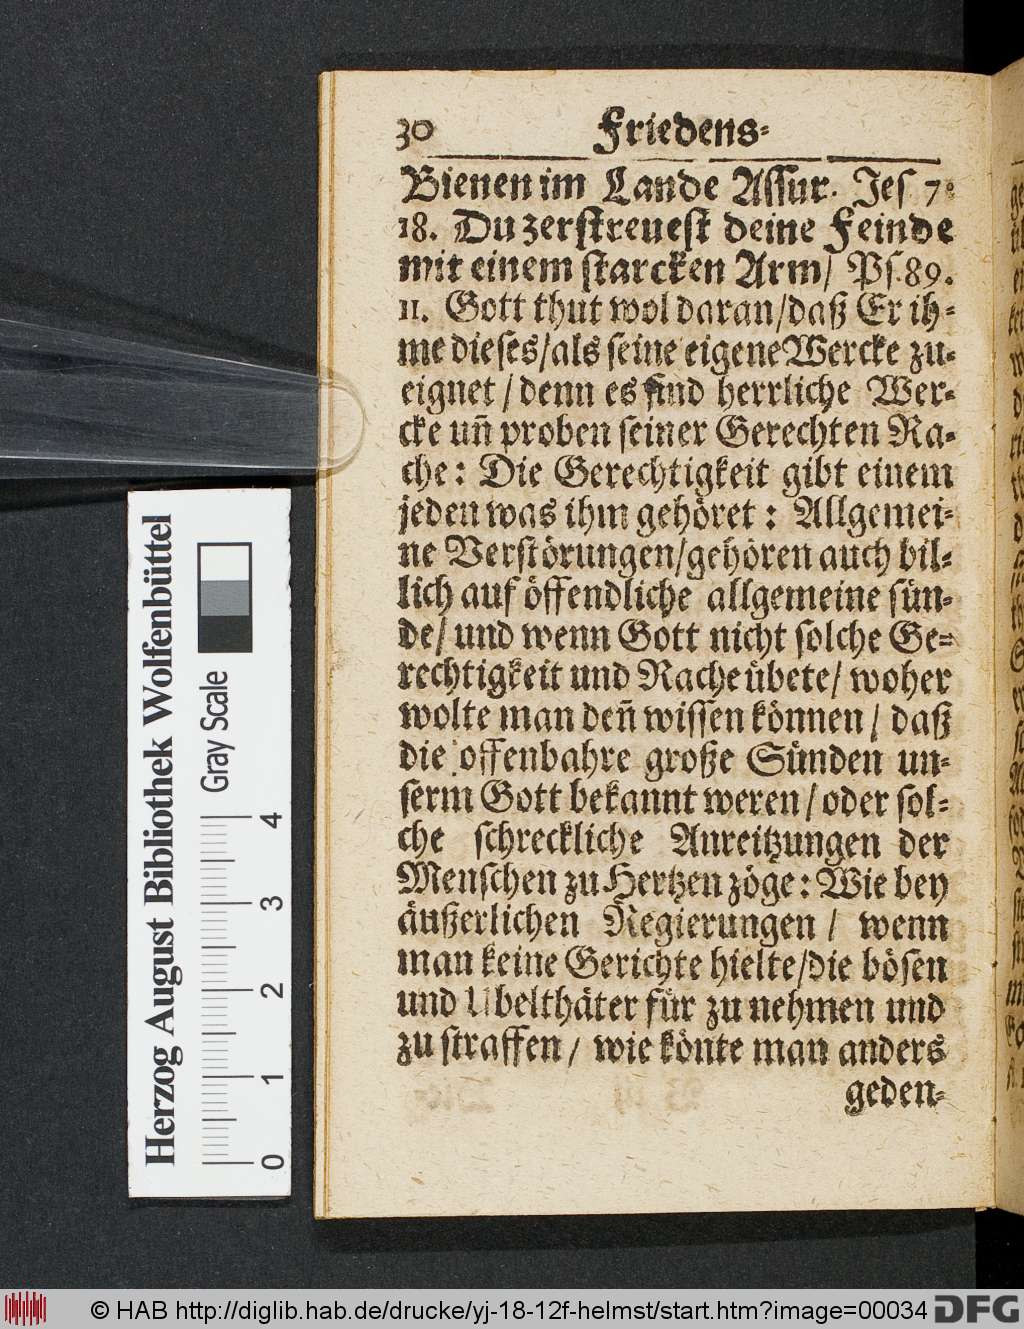 30 Friedens⸗
Bienen im Lande Assur. Jes 7.
18. Du zerstreuest deine Feinde
mit einem starcken Arm/ Ps.89.
11. Gott thut wol daran/daß Er ih⸗
me dieses/als seine eigene Wercke zu⸗
eignet/denn es sind herrliche Wer⸗
cke uñ proben seiner Gerechten Ra⸗
che: Die Gerechtigkeit gibt einem
jeden was ihm gehöret: Allgemei⸗
ne Verstörungen/gehören auch bil⸗
lich auf öffendliche allgemeine sün⸗
de/ und wenn Gott nicht solche Ge⸗
rechtigkeit und Rache übete/ woher
wolte man deñ wissen können/ daß
die offenbahre große Sünden un⸗
serm Gott bekannt weren/oder sol⸗
che schreckliche Anreitzungen der
Menschen zu Hertzen zöge: Wie bey
äußerlichen Regierungen/ wenn
man keine Gerichte hielte/die bösen
und Ubelthäter für zu nehmen und
zu straffen/ wie könte man anders
geden⸗
Herzog August Bibliothek Wolfenbüttel
Gray Scale
0 1 2 3 4
© HAB http://diglib.hab.de/drucke/yj-18-12f-helmst/start.htm?image=00034
DFG